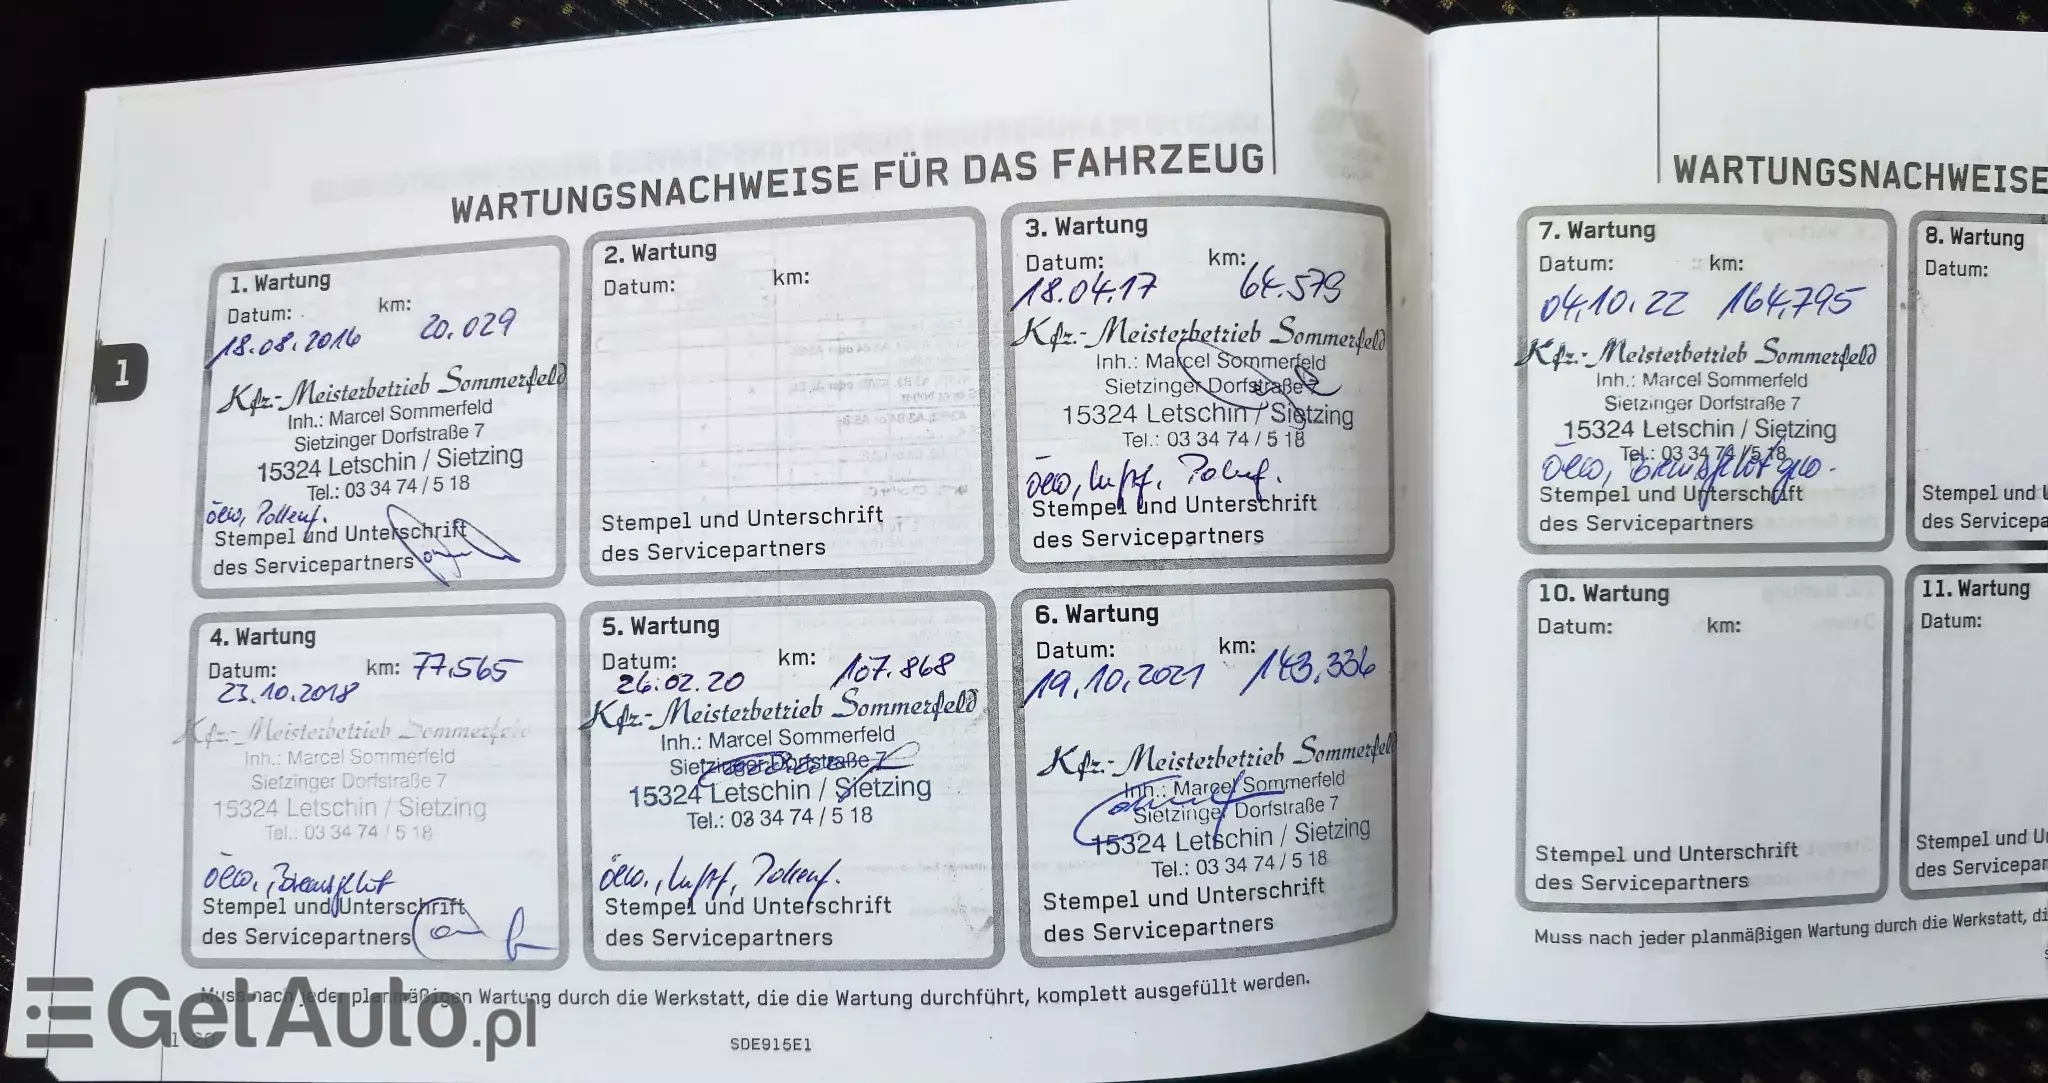 WARTUNGSNACHWEISE FÜR DAS FAHRZEUG
1
1. Wartung
Datum: km:
18.08.2016 20.029
Kfz.-Meisterbetrieb Sommerfeld
Inh.: Marcel Sommerfeld
Sietzinger Dorfstraße 7
15324 Letschin / Sietzing
Tel.: 03 34 74 / 5 18
Ölw, Pollenf.
Stempel und Unterschrift
des Servicepartners
2. Wartung
Datum: km:
Stempel und Unterschrift
des Servicepartners
3. Wartung
Datum: km:
18.04.17 64.579
Kfz.-Meisterbetrieb Sommerfeld
Inh.: Marcel Sommerfeld
Sietzinger Dorfstraße 7
15324 Letschin / Sietzing
Tel.: 03 34 74 / 5 18
Ölw, Luftf,
Stempel und Unterschrift
des Servicepartners
4. Wartung
Datum: km: 77.565
23.10.2018
Kfz.-Meisterbetrieb Sommerfeld
Inh.: Marcel Sommerfeld
Sietzinger Dorfstraße 7
15324 Letschin / Sietzing
Tel.: 03 34 74 / 5 18
Ölw.,
Stempel und Unterschrift
des Servicepartners
5. Wartung
Datum: km:
26.02.20 107.868
Kfz.-Meisterbetrieb Sommerfeld
Inh.: Marcel Sommerfeld
Sietzinger Dorfstraße 7
15324 Letschin / Sietzing
Tel.: 03 34 74 / 5 18
Ölw., Luftf, Pollenf.
Stempel und Unterschrift
des Servicepartners
6. Wartung
Datum: km:
19.10.2021 143.336
Kfz.-Meisterbetrieb Sommerfeld
Inh.: Marcel Sommerfeld
Sietzinger Dorfstraße 7
15324 Letschin / Sietzing
Tel.: 03 34 74 / 5 18
Stempel und Unterschrift
des Servicepartners
Muss nach jeder planmäßigen Wartung durch die Werkstatt, die die Wartung durchführt, komplett ausgefüllt werden.
1-20
SDE915E1
WARTUNGSNACHWEISE
7. Wartung
Datum: km:
04.10.22 164.795
Kfz.-Meisterbetrieb Sommerfeld
Inh.: Marcel Sommerfeld
Sietzinger Dorfstraße 7
15324 Letschin / Sietzing
Tel.: 03 34 74 / 5 18
Ölw,
Stempel und Unterschrift
des Servicepartners
8. Wartung
Datum:
Stempel und
des Servicepa
10. Wartung
Datum: km:
Stempel und Unterschrift
des Servicepartners
11. Wartung
Datum:
Stempel und U
des Servicepar
Muss nach jeder planmäßigen Wartung durch die Werkstatt, di
GetAuto.pl